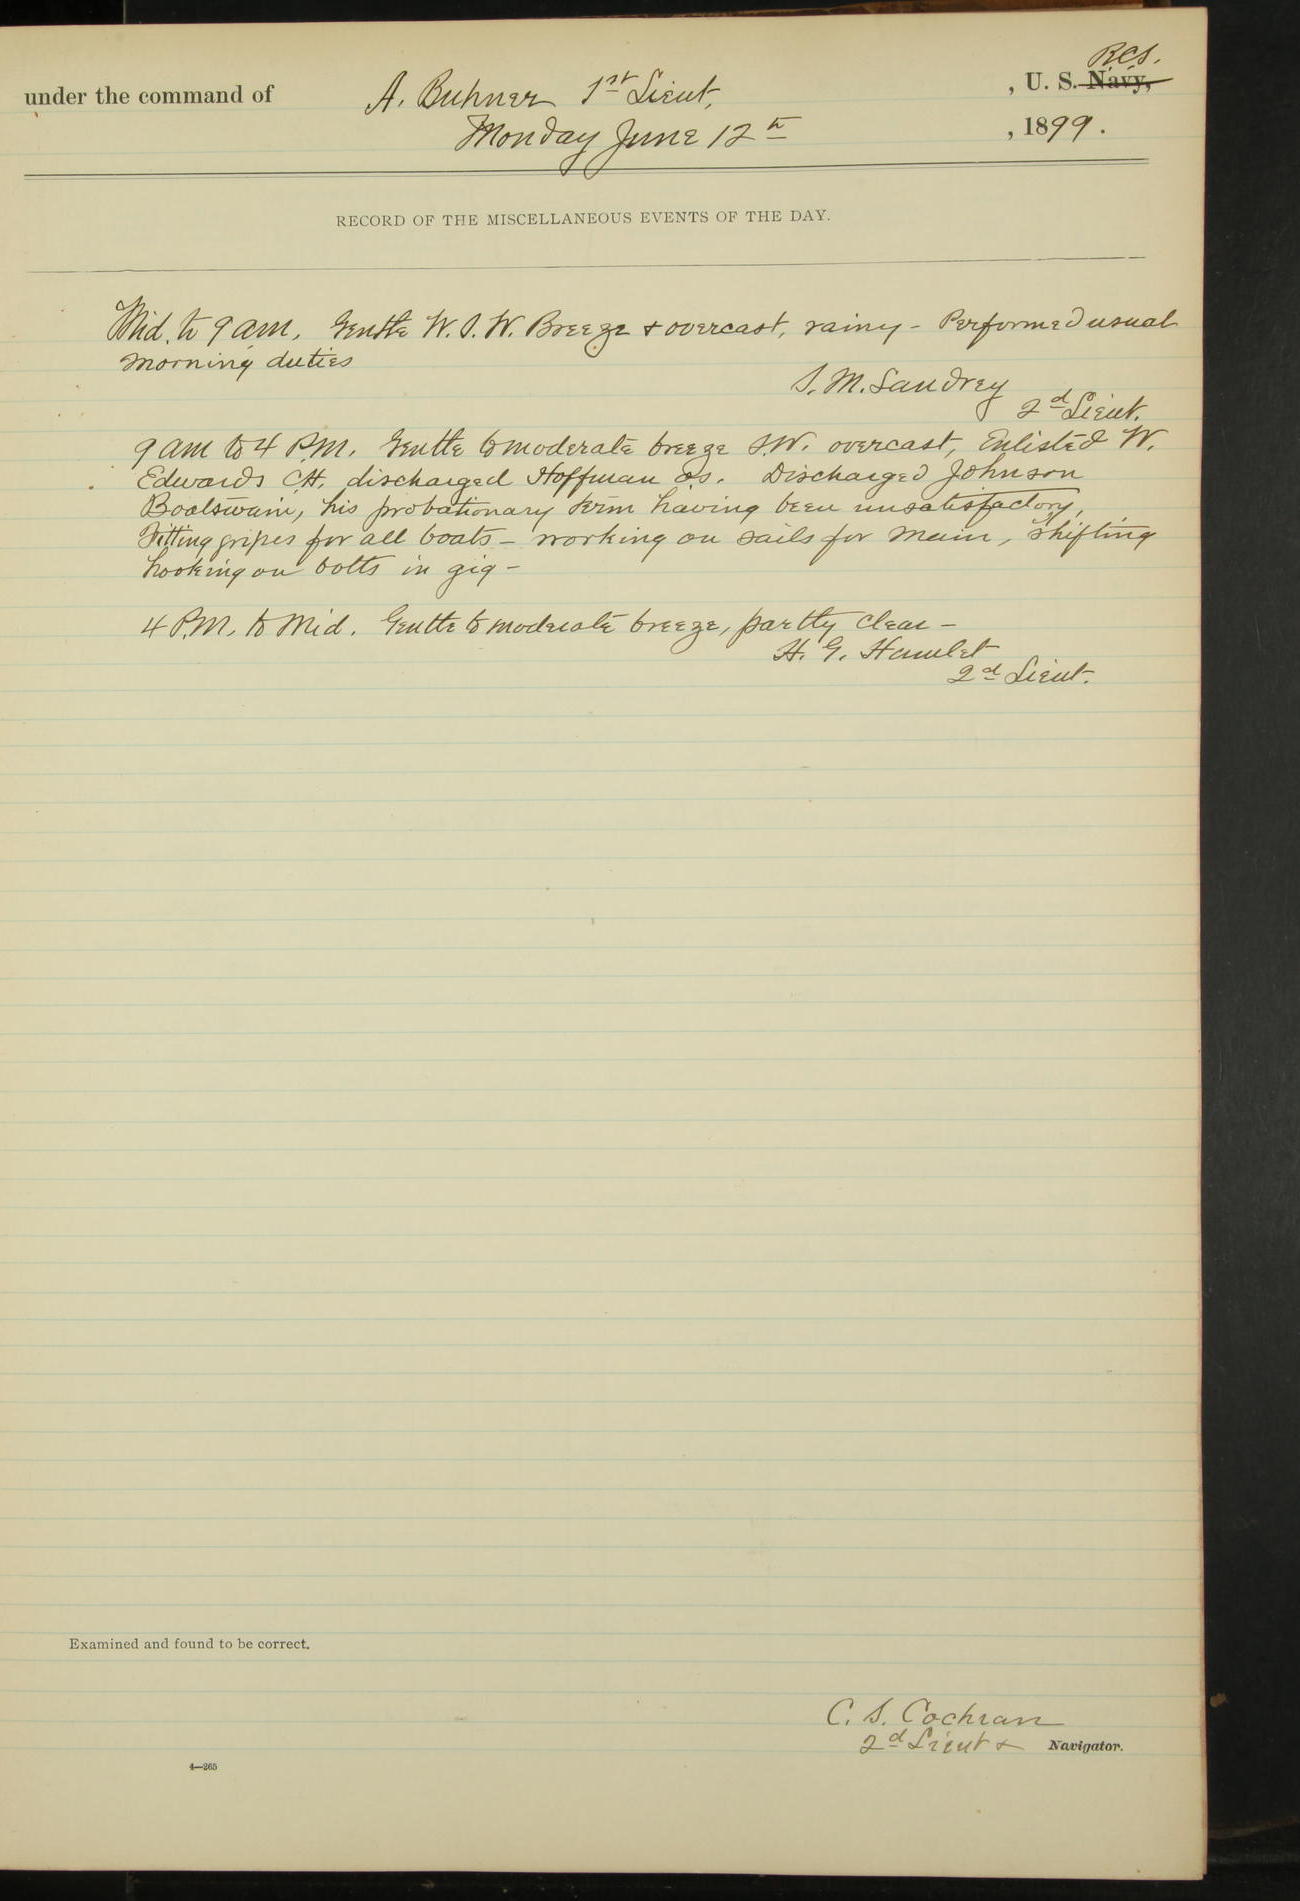 under the command of A. Buhner 1st Lieut, , U. S. Navy, R.C.S.
Monday June 12th , 1899.
RECORD OF THE MISCELLANEOUS EVENTS OF THE DAY.
Mid. to 9 am. Gentle W.S.W. Breeze & overcast, rainy - Performed usual
morning duties
S. M. Landrey
2d Lieut.
9 am to 4 P.M. Gentle to moderate breeze S.W. overcast, Enlisted W.
Edwards C.H. discharged Hoffman O.S. Discharged Johnson
Boatswain, his probationary term having been unsatisfactory,
Fitting gripes for all boats - working on sails for main, shifting
hooking on bolts in gig -
4 P.M. to Mid. Gentle to moderate breeze, partly clear -
H. G. Hamlet
2d Lieut.
Examined and found to be correct.
C. S. Cochran
2d Lieut & Navigator.
4—265